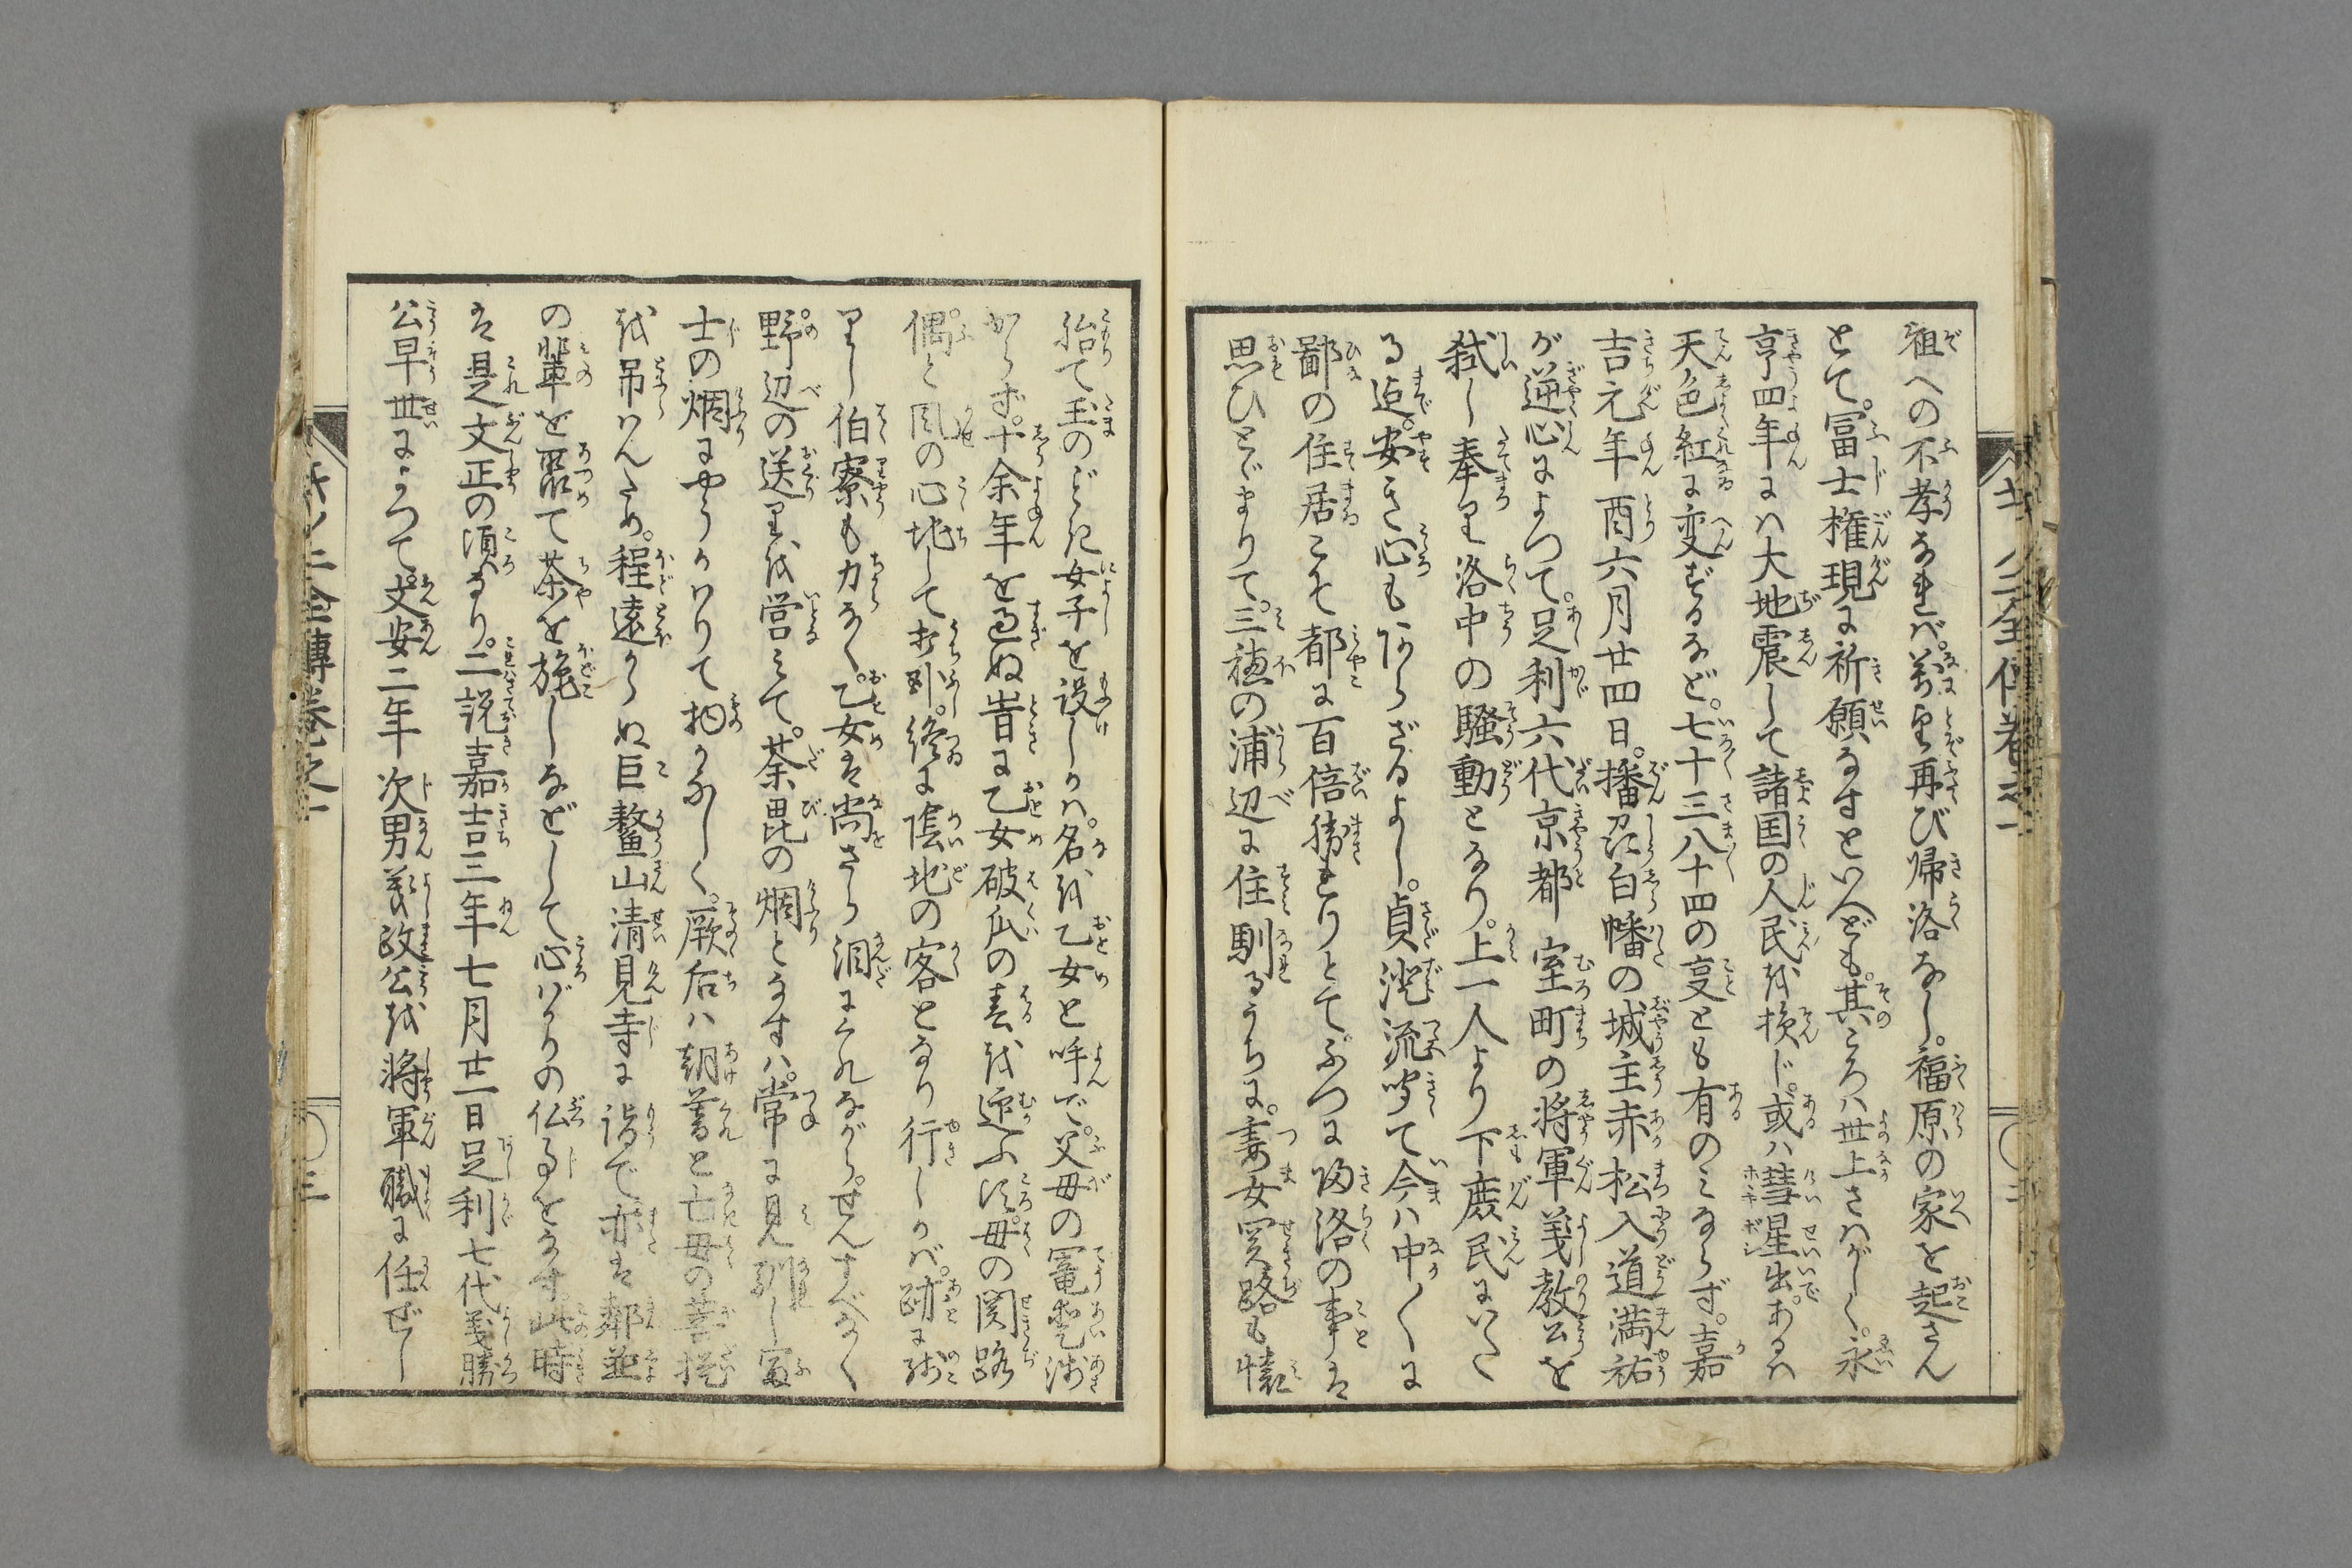 祖への不孝なれバ。萬望再び帰洛なし。福原の家を起さん
とて。冨士権現に祈願なすといへども。其ころハ世上さハがしく。永
亨四年にハ大地震して諸国の人民を損じ。或ハ彗星出。あるハ
天色紅に変ずるなど。七十三八十四の変とも有のミならず。嘉
吉元年酉六月廿四日。播州白幡の城主赤松入道満祐
が逆心によつて。足利六代京都室町の将軍義教公を
弑し奉り洛中の騒動となり。上一人より下庶民にいたく
る迄。安き心もあらざるよし。貞流聞て今ハ中〳〵に
鄙の住居こそ都に百倍勝れりとて。ふつに帰洛の事は
思ひとゞまりて。三穂の浦辺に住馴るうちに。妻女関路も懐
胎て玉のごとき女子を設しかバ。名を乙女と呼で。父母の寵愛浅
からず。十余年を過ぬ。時に乙女破瓜の春を迎ふ頃。母の関路
偶と風の心地して打臥。終に陰地の客となり行しかバ。跡に残
りし伯寮も力なく。乙女は尚さら涙にくれながら。せんすべなく
野辺の送りを営ミて。荼毘の烟となすハ。常に見馴し冨
士の烟にやうかハりて物かなしく。厥后ハ朝暮と亡母の菩提
を吊ハんため。程遠からぬ巨鼇山清見寺に詣で亦は鄰並
の輩を聚て茶を施しなどして心ばかりの仏事をなす。此時
は是文正の頃なり。二説嘉吉三年七月廿一日足利七代義勝
公早世によつて文安二年次男義政公を将軍職に任ぜし
三